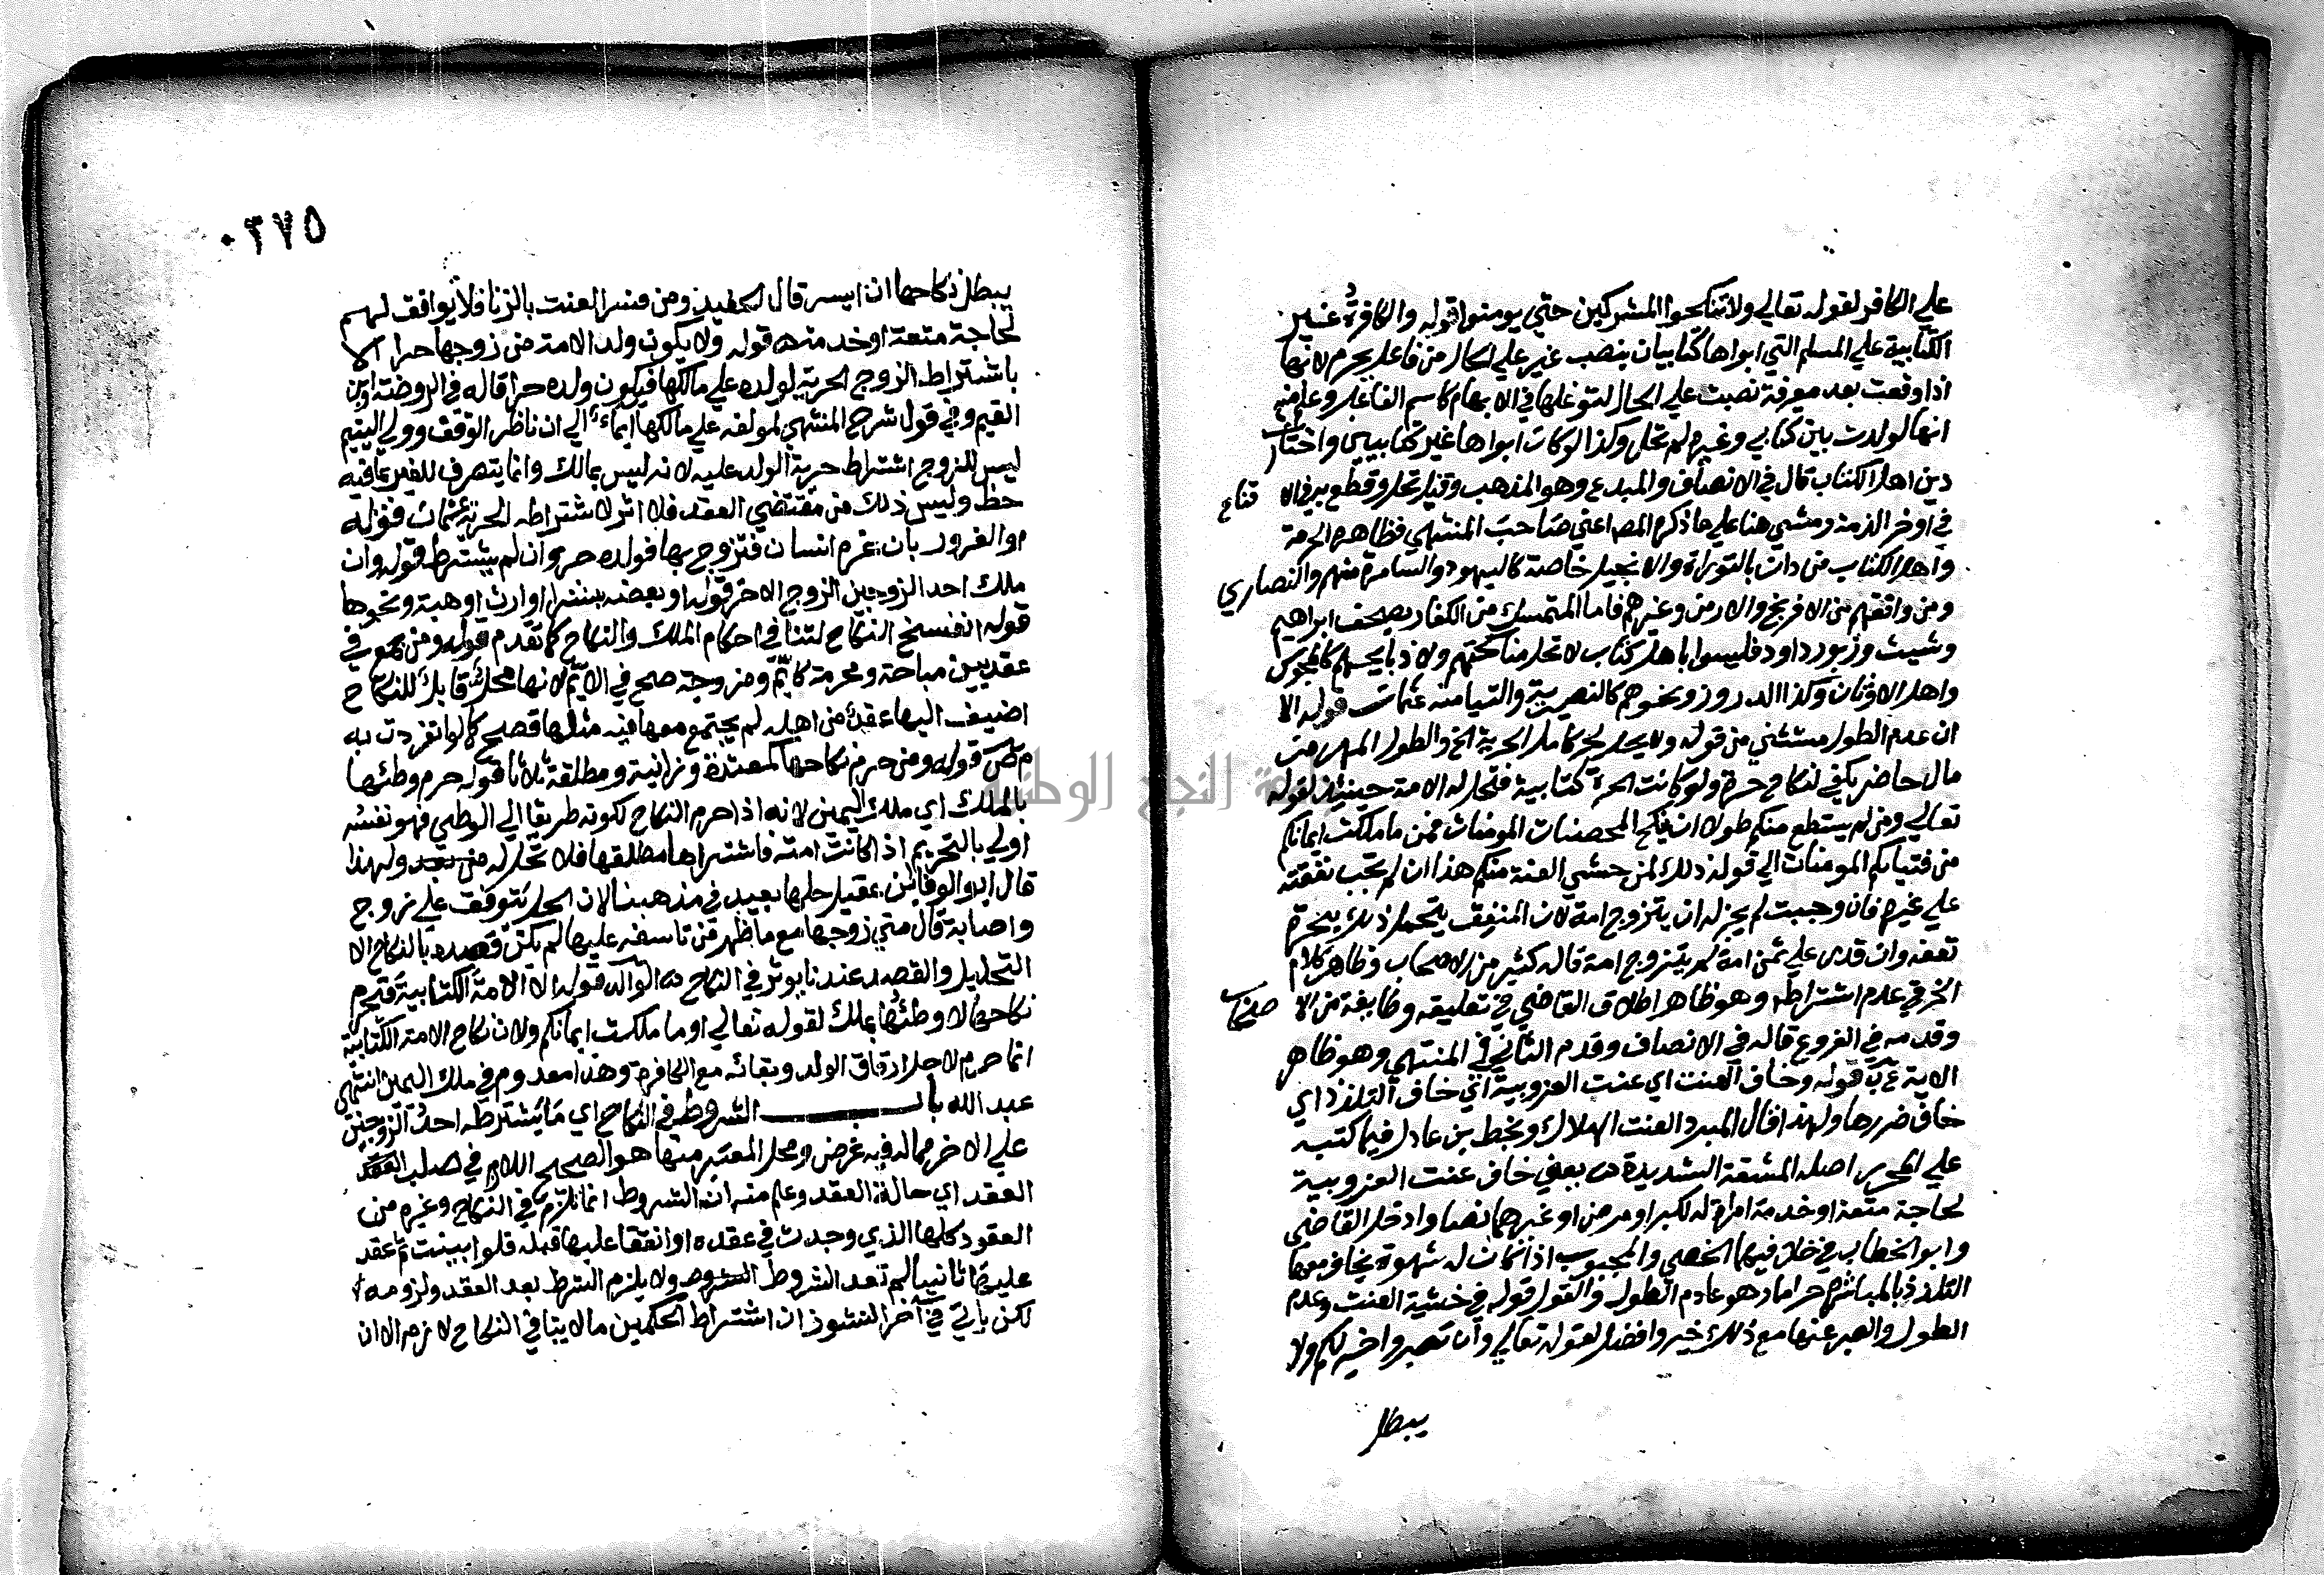 علي الكافر لقوله تعالي ولا تنكحوا المشركين حتي يومنوا قوله والكافرة غير
الكتابية علي المسلم التي ابواها كتابيان بنصب غير علي الحال من فاعل يحرم لانها
اذا وقعت بعد معرفة نصبت علي الحال لتوغلها في الابهام كاسم الفاعل وعلم منه
انها لو ولدت بين كتابي وغيره لم تحل وكذا لو كان ابواها غير كتابيين واختارت
دين اهل الكتاب قال في الانصاف والمبدع وهو المذهب وقيل تحل وقطع به في الا قناع
في اوخر الذمة ومشي هنا علي ما ذكره المص اعني صاحب المنتهي فظاهره الحرمة
واهل الكتاب من دان بالتوراة والانجيل خاصة كاليهود والسامرة منهم والنصاري
ومن وافقهم من الافرنج والارمن وغيرهم فاما المتمسك من الكفار بصحف ابراهيم
وشيث وزبور داود فليسوا باهل كتاب لا تحل مناكحتهم ولا ذبايحهم كالمجوس
واهل الاوثان وكذا الدروز ونحوهم كالنصيرية والتيامنة عثمان قوله الا
ان عدم الطول مستثني من قوله ولا يحل لحر كامل الحرية الخ والطول المهر من
مال حاضر يكفي لنكاح حرة ولو كانت الحرة كتابية فتحل له الامة حينئذ لقوله
تعالي ومن لم يستطع منكم طولا ان ينكح المحصنات المومنات فمن ما ملكت ايمانكم
من فتياتكم المومنات الي قوله ذلك لمن خشي العنة منكم هذا ان لم تجب نفقته
علي غيره فان وجبت لم يجز له ان يتزوج امة لان المنفق يتحمل ذلك بحرة
تعفه وان قدر علي ثمن امة لم يتزوج امة قاله كثير من الاصحاب وظاهر كلام
الخرقي عدم اشتراطه وهو ظاهر اطلاق القاضي في تعليقه وطايفة من الا صحاب
وقدمه في الفروع قاله في الانصاف وقدم الثاني في المنتهي وهو ظاهر
الاية قوله وخاف العنت اي عنت العزوبية اي خاف التلذذ اي
خاف ضررها ولهذا قال المبرد العنت الهلاك وبخط بن عادل فيما كتبه
علي المحرر اصله المشقة الشديدة يعني خاف عنت العزوبية
لحاجة متعة او خدمة امراة له لكبر او مرض او غيرهما نصا وادخل القاضي
وابو الخطاب في خلافيهما الخصي والمجبوب اذا كان له شهوة يخاف معها
التلذذ بالمباشرة حراما وهو عادم الطول والقول قوله في خشية العنت وعدم
الطول والصبر عنها مع ذلك خير وافضل لقوله تعالي وان تصبروا خير لكم ولا
يبطل
٠٣٧٥
يبطل نكاحها ان ايسر قال الحفيد ومن فسر العنت بالزنا فلا يوافق لهم
لحاجة متعة او خدمة قوله ولا يكون ولد الامة من زوجها حرا الا
باشتراط الزوج الحرية لولده علي مالكها فيكون ولده حرا قاله في الروضة وابن
القيم وفي قول شرح المنتهي لمولفه علي مالكها ايماء الي ان ناظر الوقف وولي اليتيم
ليس للزوج اشتراط حرية الولد عليه لانه ليس بمالك وانما يتصرف للغير بما فيه
حظ وليس ذلك من مقتضي العقد فلا اثر لاشتراطه الحرية عثمان قوله
او الغرور بان غرم انسان فتزوج بها فولده حر وان لم يشترط قوله وان
ملك احد الزوجين الزوج الاخر قوله او بعضه بشرا او ارث او هبة ونحوها
قوله انفسخ النكاح لتنافي احكام الملك والنكاح كما تقدم قوله ومن جمع في
عقد بين مباحة ومحرمة كايم ومزوجة صح في الايم لانها محل قابل للنكاح
اضيف اليها عقد من اهله لم يجتمع معها فيه مثلها فصح كما لو انفردت به
م ص قوله ومن حرم نكاحها كمعتدة وزانية ومطلقة ثلاثا قوله حرم وطئها
بالملك اي ملك اليمين لانه اذا حرم النكاح لكونه طريقا الي الوطي فهو نفسه
اولي بالتحريم اذ اكانت امته فاشتراها مطلقها فلا تحل له من بعد ولهذا
قال ابو الوفا بن عقيل حلها بعيد في مذهبنا لان الحل يتوقف علي تزوج
واصابة قال متي زوجها مع ما ظهر من تاسفه عليها لم يكن قصده بالنكاح الا
التحليل والقصد عندنا يوثر في النكاح ذه الوالد قوله الا الامة الكتابية فتحرم
نكاحها لا وطئها بملك لقوله تعالي او ما ملكت ايمانكم ولان نكاح الامة الكتابية
انما حرم لاجل ارقاق الولد وبقائه مع الكافرة وهذا معدوم في ملك اليمين انتهي
عبد الله باب الشروط في النكاح اي ما يشترطه احد الزوجين
علي الاخر مما له فيه غرض ومحل المعتبر منها هو الصحيح اللازم في صلب العقد
العقد اي حالة العقد وعلم منه ان الشروط انما تلزم في النكاح وغيره من
العقود كلها الذي وجدت في عقده او اتفقا عليها قبله فلو ابينت ثم عقد
عليها ثانيا لم تعد الشروط ولا يلزم الشرط بعد العقد ولزومه
لكن ياتي في آخر النشوز ان اشتراط الحكمين ما لا ينافي النكاح لازم الا ان